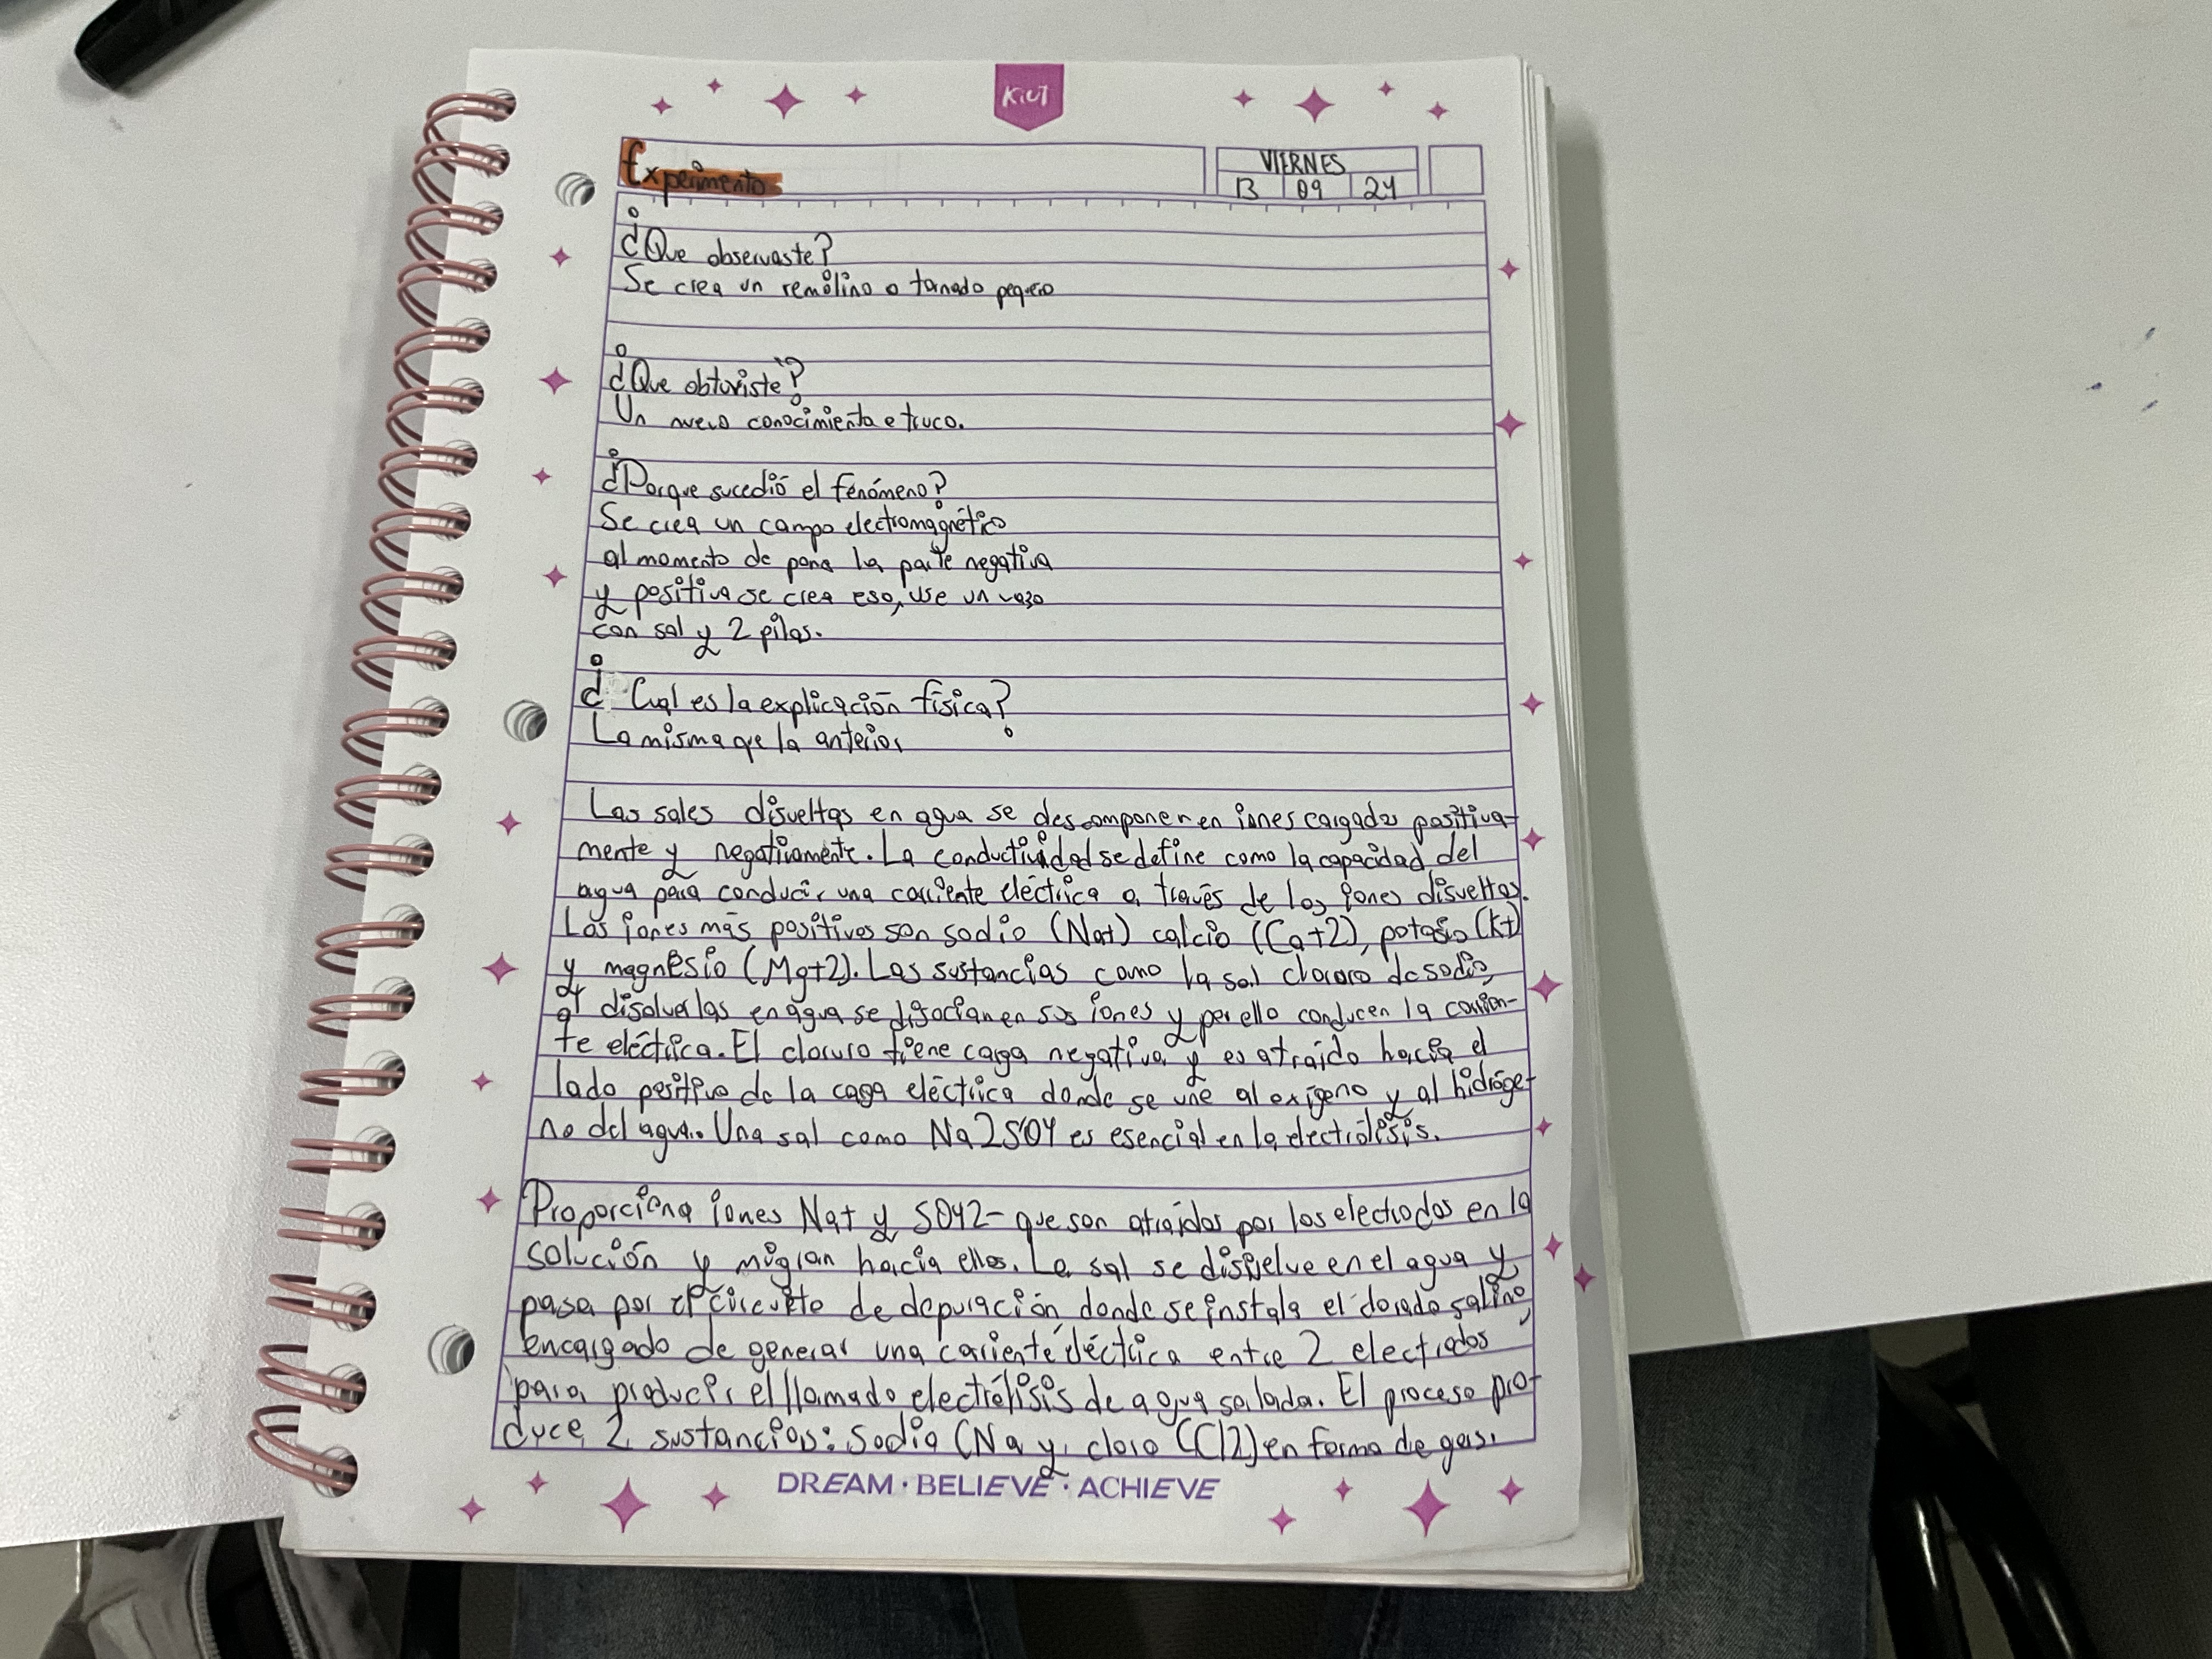 KIUT
Experimento
VIERNES
13 09 24
¿Que observaste?
Se crea un remolino o tornado pequeño
¿Que obtuviste?
Un nuevo conocimiento e truco.
¿Porque sucedió el fenómeno?
Se crea un campo electromagnético
al momento de poner la parte negativa
y positiva se crea eso, use un vazo
con sal y 2 pilas.
¿Cual es la explicación física?
La misma que la anterior
Las sales disueltas en agua se descomponen en iones cargados positiva-
mente y negativamente. La conductividad se define como la capacidad del
agua para conducir una corriente eléctrica a través de los iones disueltos.
Los iones más positivos son sodio (Na+) calcio (Ca+2), potasio (K+)
y magnésio (Mg+2). Las sustancias como la sal cloruro de sodio,
al disolverlas en agua se disocian en sus iones y por ello conducen la corrien-
te eléctrica. El cloruro tiene carga negativa y es atraído hacia el
lado positivo de la carga eléctrica donde se une al oxígeno y al hidróge-
no del agua. Una sal como Na2SO4 es esencial en la electrólisis.
Proporciona iones Na+ y SO42- que son atraídos por los electrodos en la
solución y migran hacia ellos. La sal se disuelve en el agua y
pasa por el circuito de depuración donde se instala el clorado salino,
encargado de generar una coriente eléctrica entre 2 electrodos
para producir el llamado electrólisis de agua salada. El proceso pro-
duce 2 sustancias: Sodio (Na y cloro (Cl2) en forma de gas.
DREAM · BELIEVE · ACHIEVE